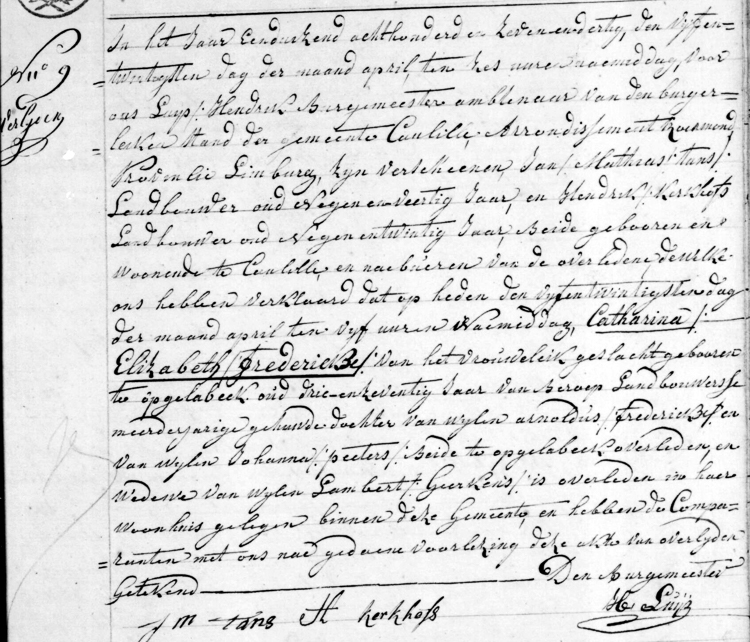 N° 9
In het Jaar Eenduizend achthonderd en zeven endertig, den vyften=
=twintigsten dag der maand april, ten zes uure naemiddag, voor
ons Luys /: Hendrik Burgemeester ambtenaar van den burger=
=leiken stand der gemeente Caulille, Arrondissement Roermond,
Provincie Limburg, Zyn verscheenen, Jan /: Mathias tans /:
Landbouwer oud Negen en veertig Jaar, en Hendrik /: Kerkhofs
Landbouwer oud Negen entwintig Jaar, Beide gebooren en
woonende te Caulille, en naebueren van de overledene, dewelke
ons hebben verklaard dat op heden den vyfentwintigsten dag
der maand april ten vyf uuren Naemiddag, Catharina /:
Elizabeth /: frederickx /: van het vrouweleik geslacht gebooren
te opgelabeek oud drie-enzeventig Jaar van Beroep Landbouwersse
meerderjarige gehuwde dochter van wylen arnoldus /: frederickx /: en
van wylen Johanna /: peeters /: Beide te opgelabeek overleden, en
Weduwe van wylen Lambert /: Geerkens /: is overleden in haer
woonhuis gelegen binnen deze Gemeente, en hebben de Compa=
=ranten met ons nae gedaene voorlezing deze akte van overlyden
Getekend Den Burgemeester
J m tans H kerkhofs H Luyx